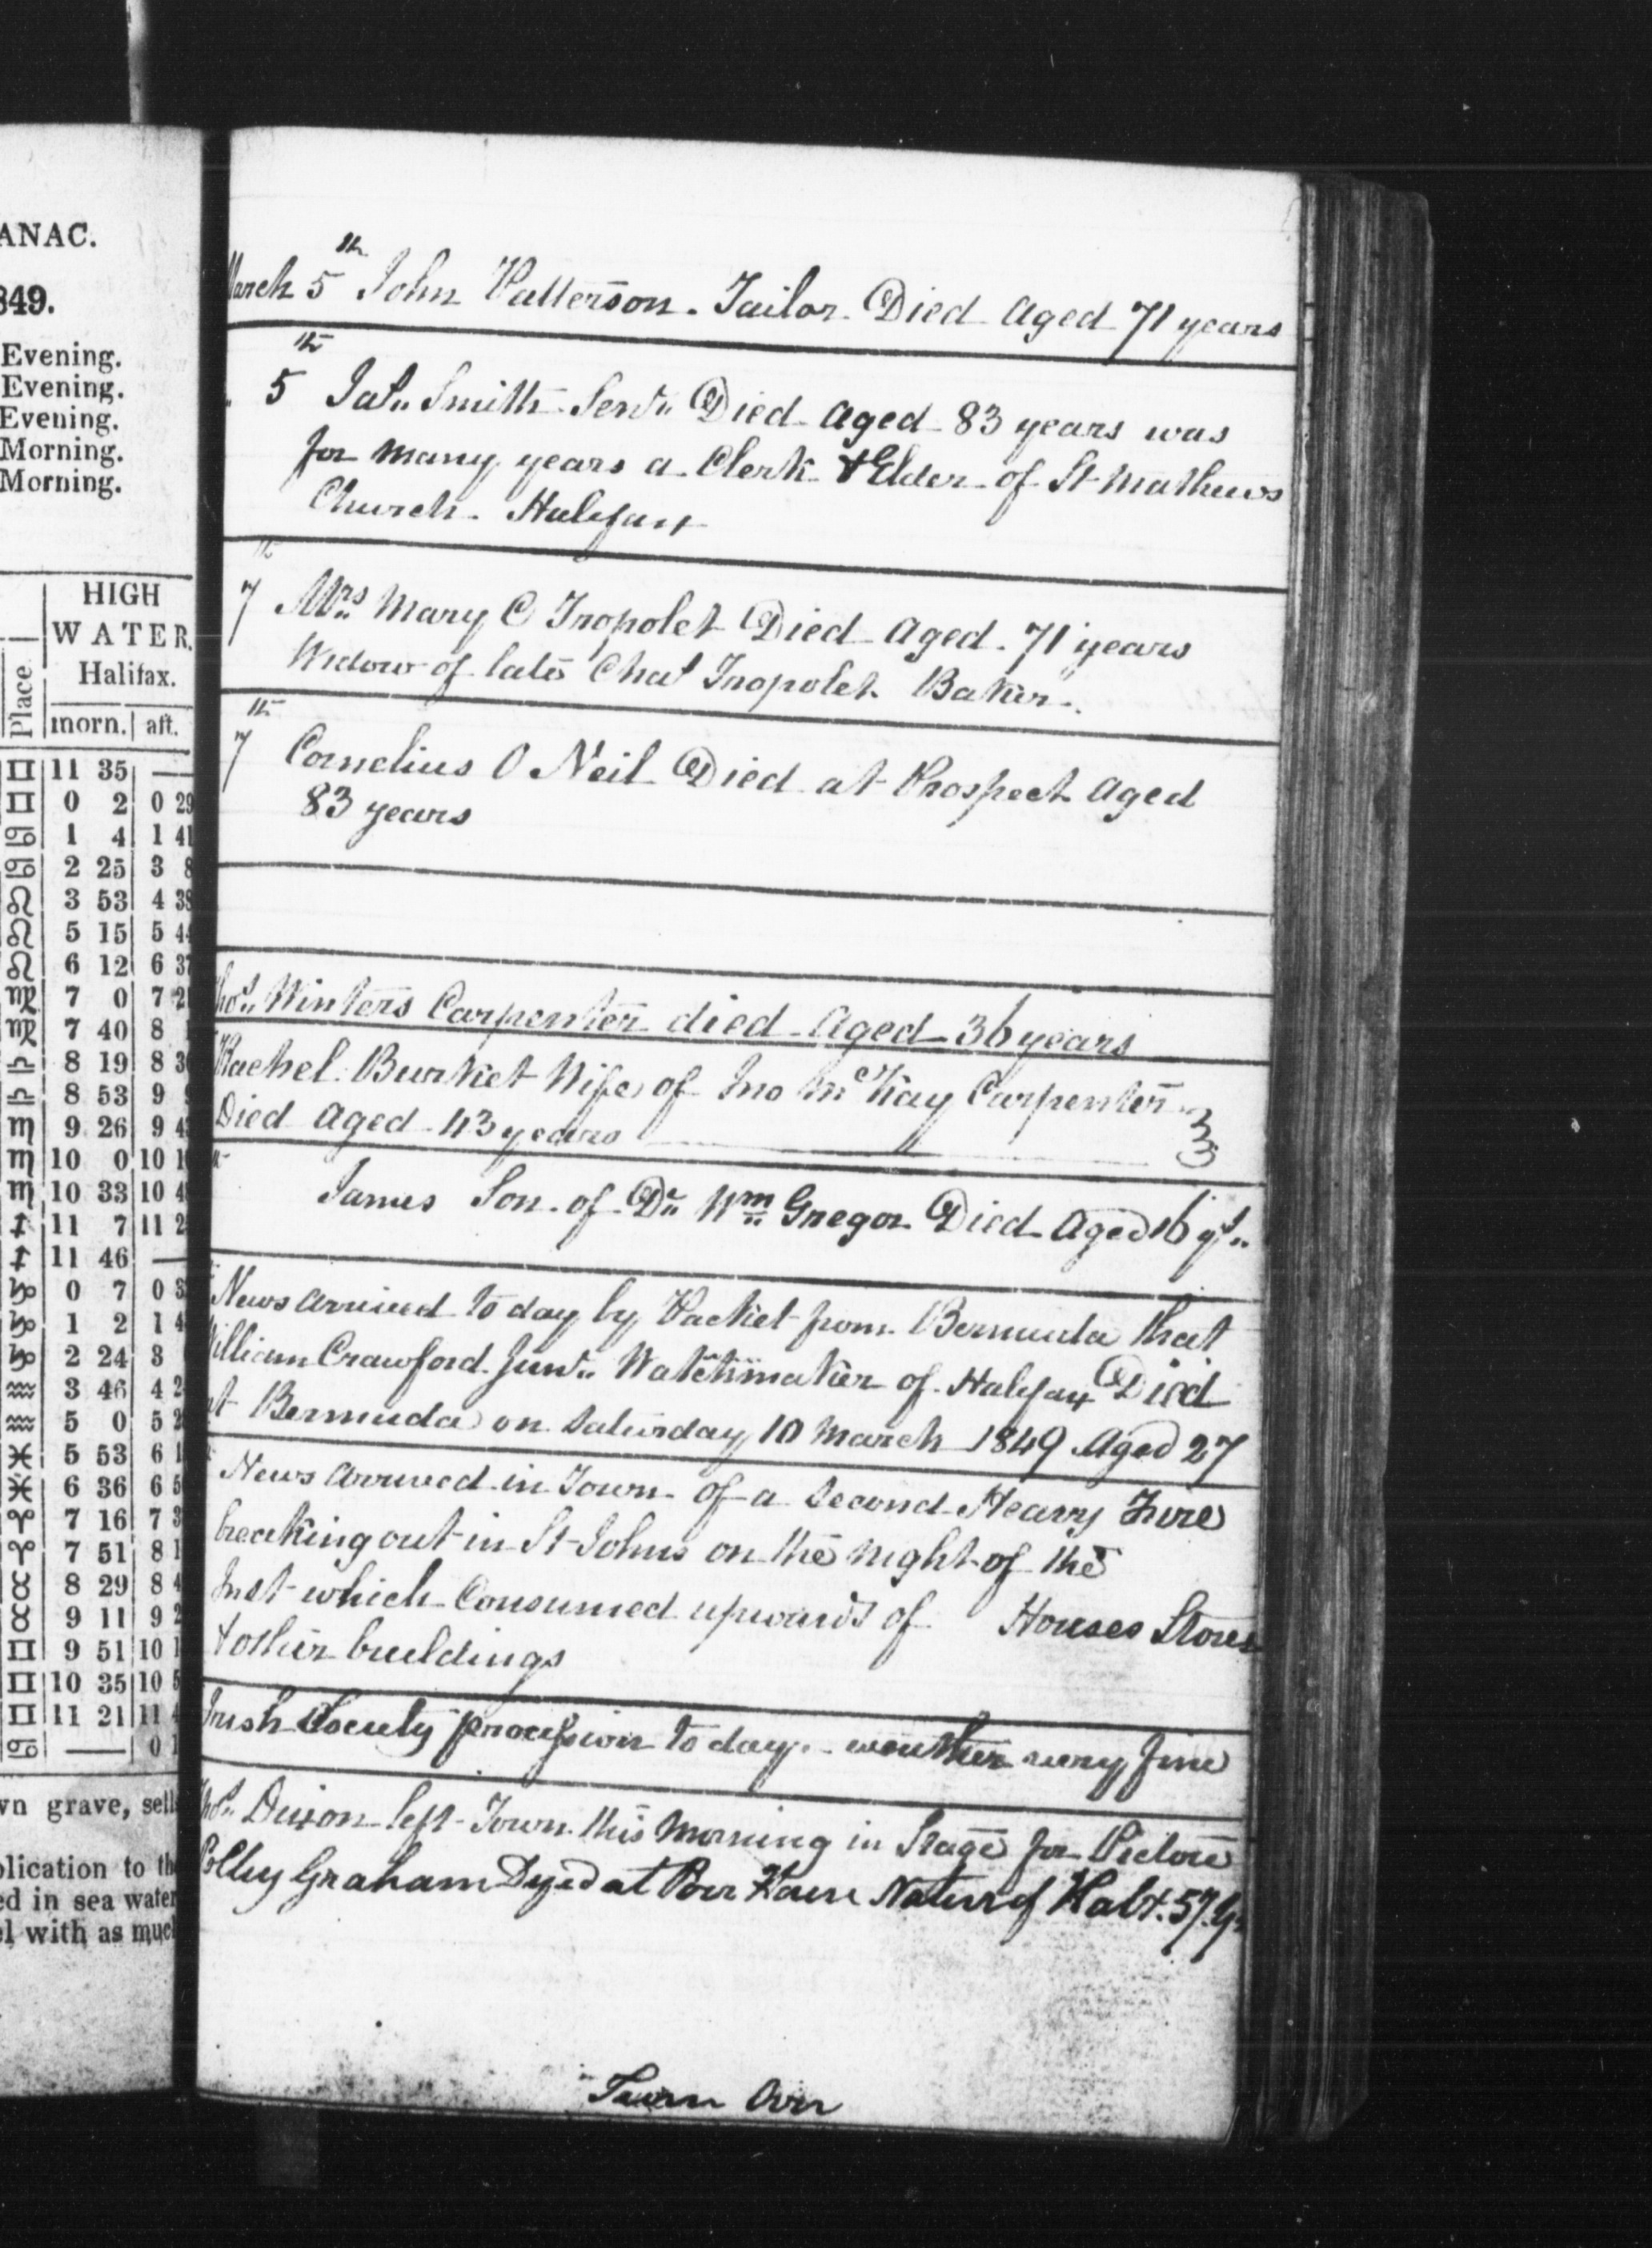 ANAC.
849.
Evening.
Evening.
Evening.
Morning.
Morning.
HIGH
WATER.
Place
Halifax.
morn. aft.
♊ 11 35 —
♊ 0 2 0 29
♋ 1 4 1 41
♋ 2 25 3 8
♌ 3 53 4 38
♌ 5 15 5 44
♌ 6 12 6 37
♍ 7 0 7 2
♍ 7 40 8
♎ 8 19 8 3
♎ 8 53 9
♏ 9 26 9 4
♏ 10 0 10 1
♏ 10 33 10 4
♐ 11 7 11 2
♐ 11 46 —
♑ 0 7 0 3
♑ 1 2 1 4
♑ 2 24 3
♒ 3 46 4 2
♒ 5 0 5 2
♓ 5 53 6 1
♓ 6 36 6 5
♈ 7 16 7 3
♈ 7 51 8 1
♉ 8 29 8 4
♉ 9 11 9 2
♊ 9 51 10 1
♊ 10 35 10 5
♊ 11 21 11 4
♋ — 0 1
wn grave, sell
plication to th
ed in sea water
el with as muc
March 5th John Patterson. Tailor Died Aged 71 years
5th Jas. Smith Senr. Died Aged 83 years was
for many years a Clerk & Elder of St Mathews
Church. Halifax
7th Mrs. Mary C Inopolet Died Aged 71 years
Widow of late Chas Inopolet Baker.
7th Cornelius O Neil Died at Prospect Aged
83 years
Thos. Winters Carpenter died Aged 36 years
Rachel Burket Wife of Jno McKay Carpenter
Died Aged 43 years
James Son of Dr. Wm. Gregor Died Aged 16 ys.
News arrived to day by Packet from Bermuda that
William Crawford Junr. Watchmaker of Halifax Died
at Bermuda on Saturday 10 March 1849 Aged 27
News arrived in Town of a Second Heavy Fire
breaking out in St Johns on the night of the
Inst which Consumed upwards of Houses Stores
& other buildings
Irish Society procession to day. weather very fine
Thos. Dixon left Town this Morning in Stage for Pictou
Polly Graham Dyed at Poor House Native of Halx. 57 Ys
Turn Over